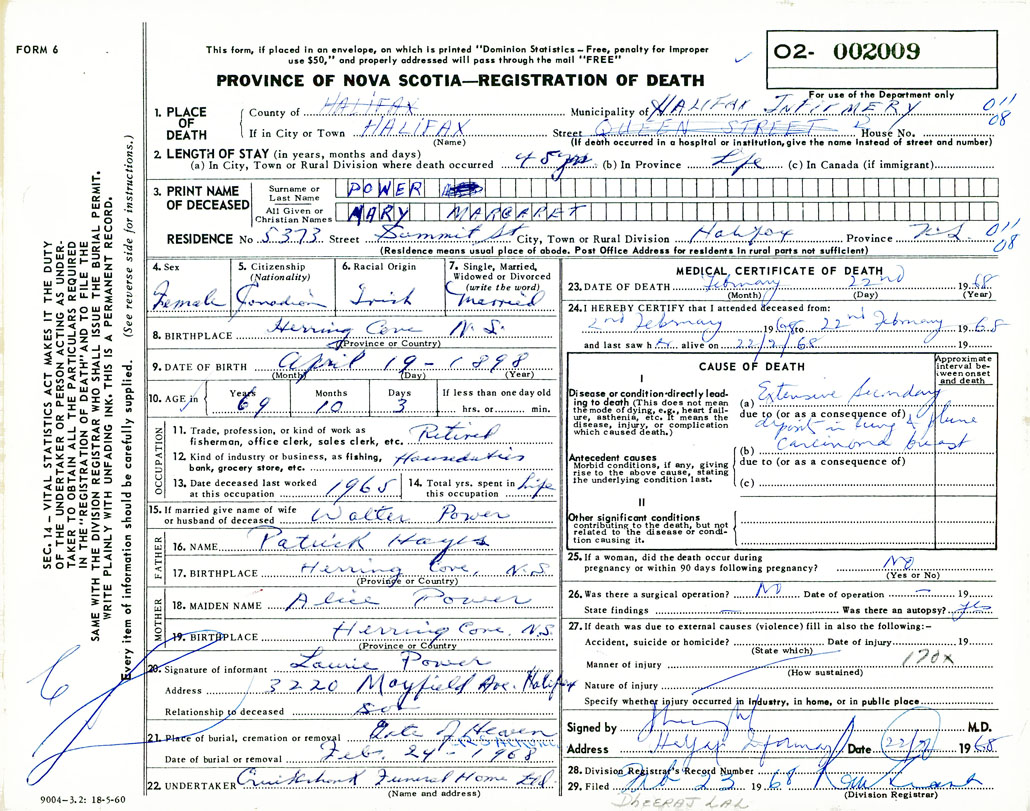 FORM 6
This form, if placed in an envelope, on which is printed "Dominion Statistics – Free, penalty for Improper
use $50," and properly addressed will pass through the mail "FREE"
O2- 002009
PROVINCE OF NOVA SCOTIA—REGISTRATION OF DEATH
For use of the Department only
1. PLACE OF DEATH
County of HALIFAX Municipality of HALIFAX INFIRMERY 011 08
If in City or Town HALIFAX Street QUEEN STREET House No.
(Name) (If death occurred in a hospital or institution, give the name instead of street and number)
2. LENGTH OF STAY (in years, months and days)
(a) In City, Town or Rural Division where death occurred 45 yrs (b) In Province Life (c) In Canada (if immigrant)
3. PRINT NAME OF DECEASED
Surname or Last Name POWER
All Given or Christian Names MARY MARGARET
RESIDENCE No 5373 Street Summit St City, Town or Rural Division Halifax Province N.S. 011 08
(Residence means usual place of abode. Post Office Address for residents in rural parts not sufficient)
4. Sex Female
5. Citizenship (Nationality) Canadian
6. Racial Origin Irish
7. Single, Married, Widowed or Divorced (write the word) Married
8. BIRTHPLACE Herring Cove N.S.
(Province or Country)
9. DATE OF BIRTH April 19 - 1898
(Month) (Day) (Year)
10. AGE in Years 69 Months 10 Days 3 If less than one day old hrs. or min.
OCCUPATION
11. Trade, profession, or kind of work as fisherman, office clerk, sales clerk, etc. Retired
12. Kind of industry or business, as fishing, bank, grocery store, etc. Houseduties
13. Date deceased last worked at this occupation 1965
14. Total yrs. spent in this occupation Life
15. If married give name of wife or husband of deceased Walter Power
FATHER
16. NAME Patrick Hayes
17. BIRTHPLACE Herring Cove, N.S.
(Province or Country)
MOTHER
18. MAIDEN NAME Alice Power
19. BIRTHPLACE Herring Cove, N.S.
(Province or Country
20. Signature of informant Laurie Power
Address 3220 Mayfield Ave. Halifax
Relationship to deceased son
21. Place of burial, cremation or removal Gate of Heaven
Date of burial or removal Feb. 24 - 1968
22. UNDERTAKER Cruikshank Funeral Home Ltd.
(Name and address)
9004–3.2: 18-5-60
MEDICAL CERTIFICATE OF DEATH
23. DATE OF DEATH February 22nd 1968
(Month) (Day) (Year)
24. I HEREBY CERTIFY that I attended deceased from:
2nd February 1968 to 22nd February 1968
and last saw her alive on 22/2/68 19
CAUSE OF DEATH
Approximate interval between onset and death
I
Disease or condition directly leading to death (This does not mean the mode of dying, e.g., heart failure, asthenia, etc. It means the disease, injury, or complication which caused death.)
(a) Extensive Secondary
due to (or as a consequence of)
deposit in lung & pleura
Antecedent causes
Morbid conditions, if any, giving rise to the above cause, stating the underlying condition last.
(b) Carcinoma breast
due to (or as a consequence of)
(c)
II
Other significant conditions
contributing to the death, but not related to the disease or condition causing it.
25. If a woman, did the death occur during pregnancy or within 90 days following pregnancy? NO
(Yes or No)
26. Was there a surgical operation? NO Date of operation – 19
State findings — Was there an autopsy? yes
27. If death was due to external causes (violence) fill in also the following:–
Accident, suicide or homicide? Date of injury 19
(State which)
Manner of injury 170x
(How sustained)
Nature of injury
Specify whether injury occurred in industry, in home, or in public place
Signed by M.D.
Address Date 22/2 1968
28. Division Registrar's Record Number
29. Filed Feb 23 1968
(Division Registrar)
DHEERAJ LAL
SEC. 14 – VITAL STATISTICS ACT MAKES IT THE DUTY
OF THE UNDERTAKER OR PERSON ACTING AS UNDER-
TAKER TO OBTAIN ALL THE PARTICULARS REQUIRED
IN THE "REGISTRATION OF DEATH" AND TO FILE THE
SAME WITH THE DIVISION REGISTRAR WHO SHALL ISSUE THE BURIAL PERMIT.
WRITE PLAINLY WITH UNFADING INK. THIS IS A PERMANENT RECORD.
Every item of information should be carefully supplied. (See reverse side for instructions.)